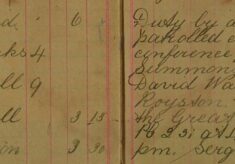 d. 6
cks 4
ll 9
ll 3 15
on 3 30
Duty by a
patrolled a
conference
summons
David Wa
Royston.
the Great
pm. Serg